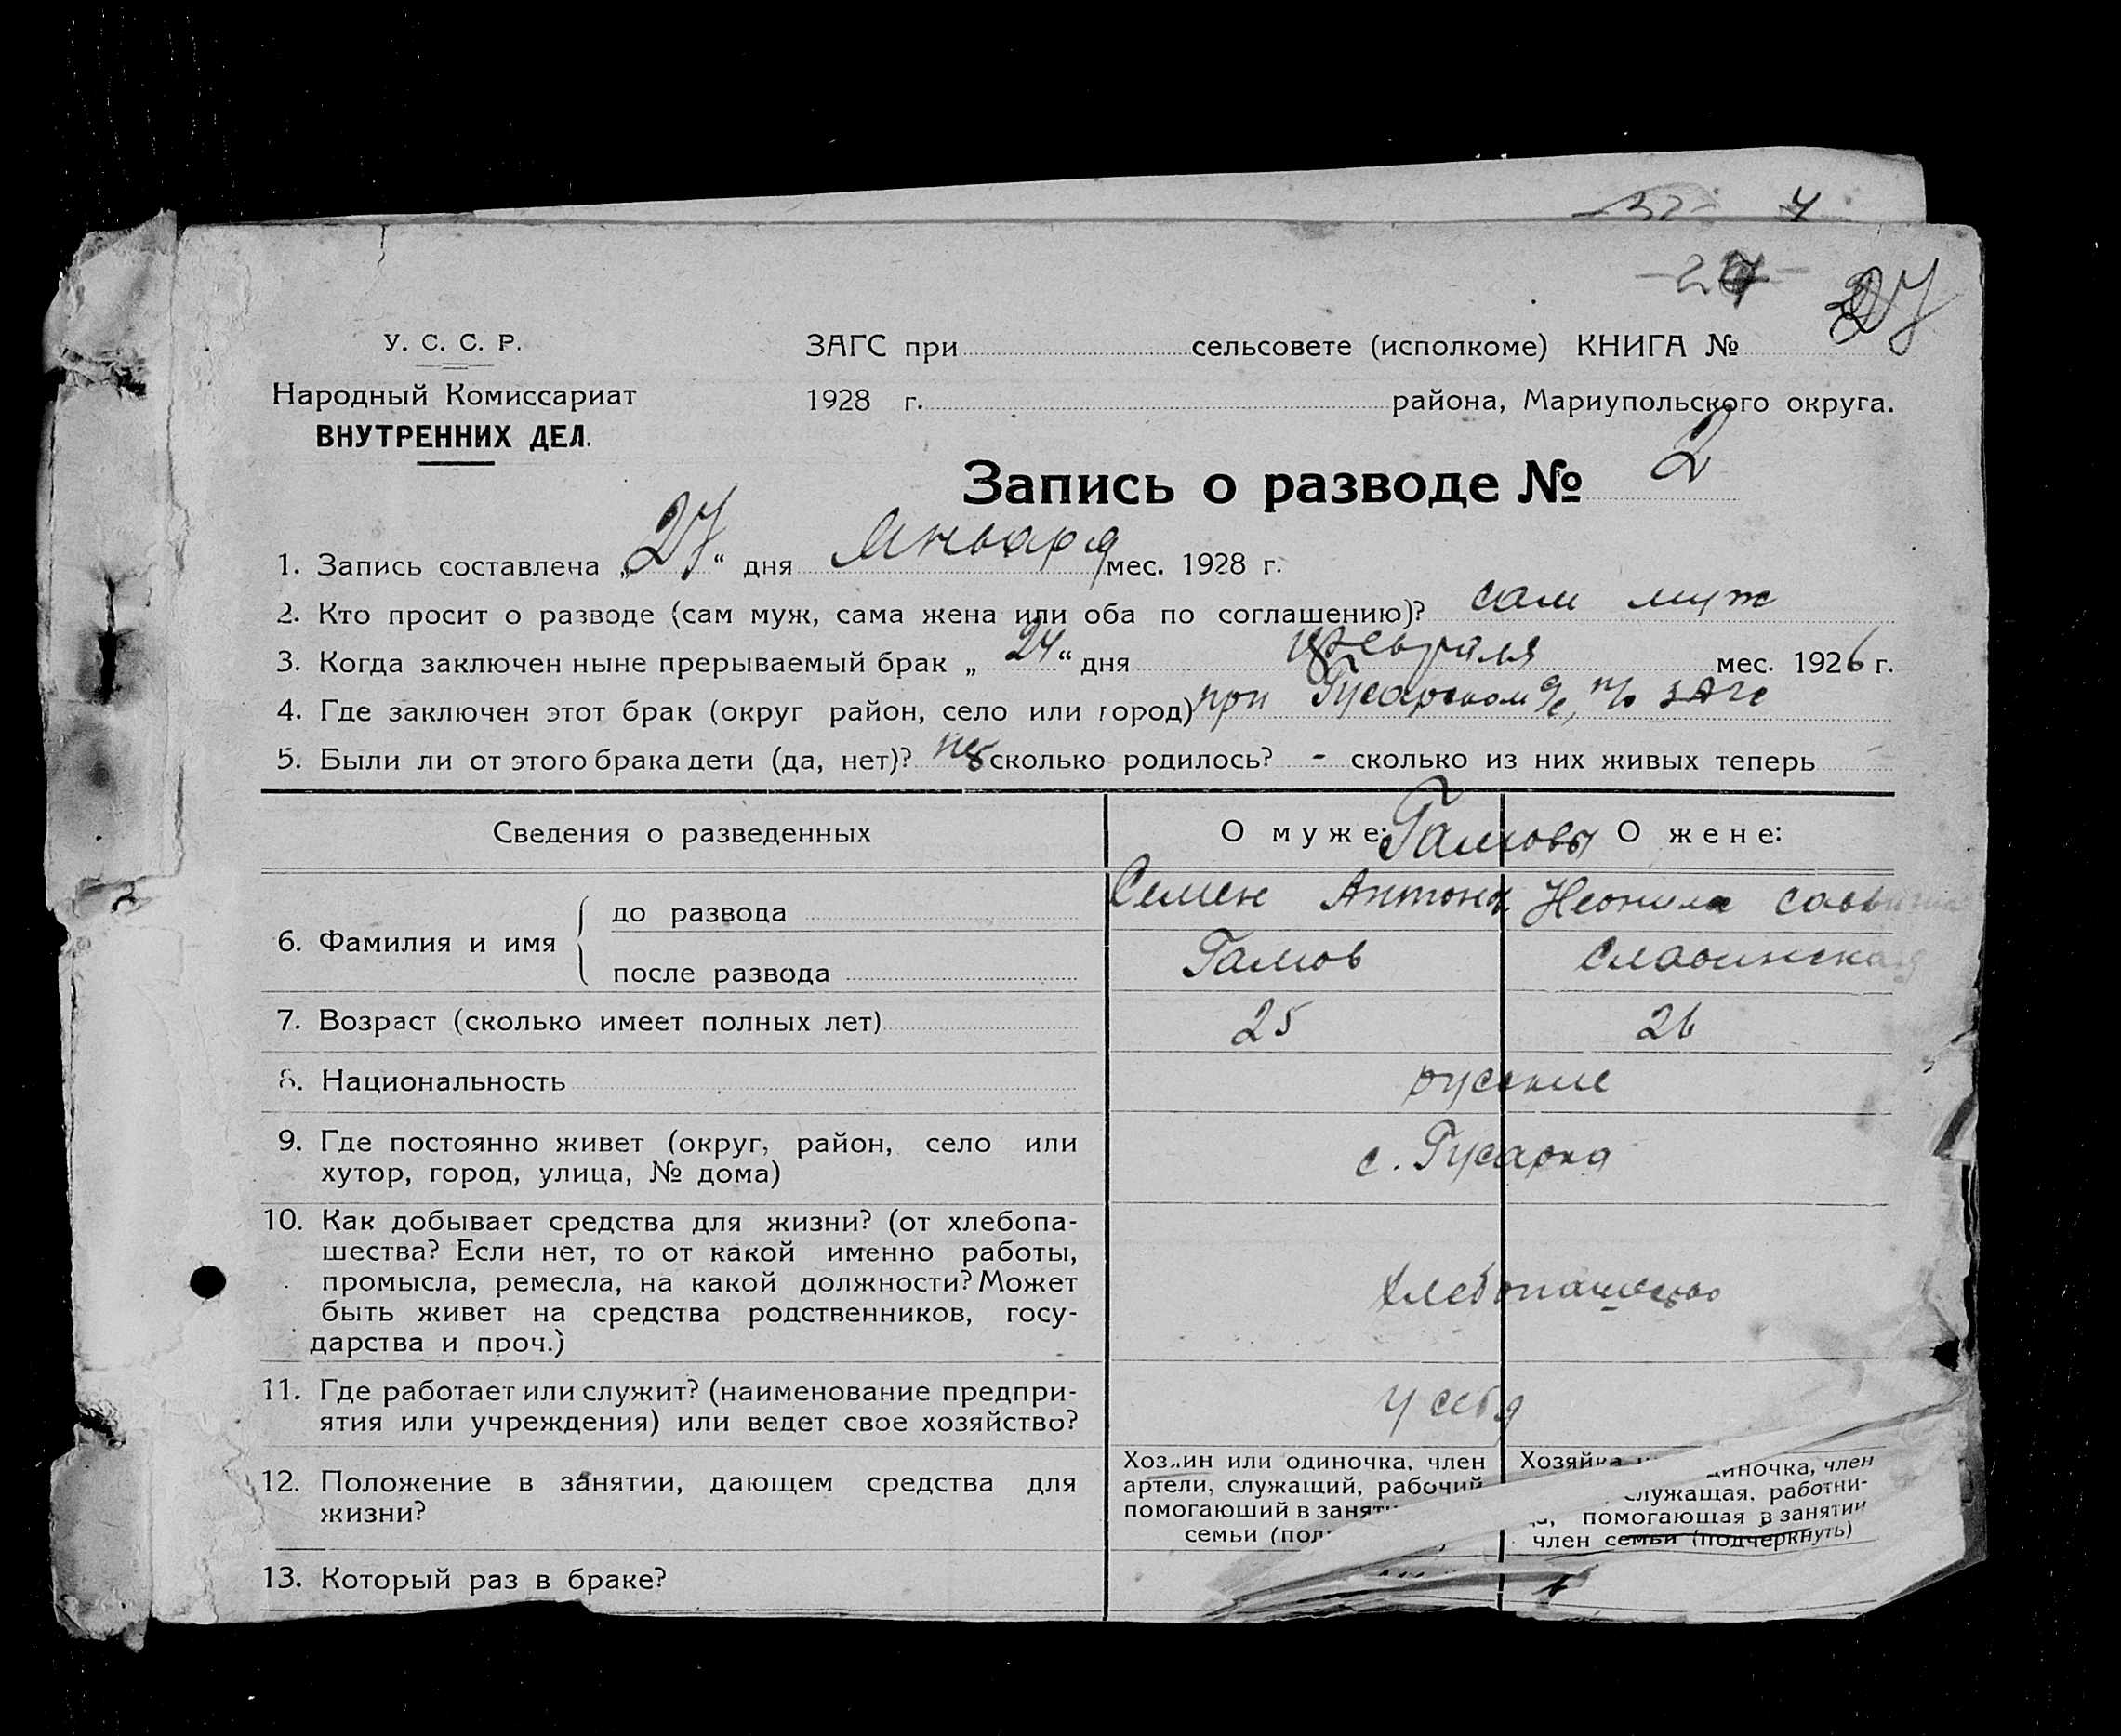 27
У. С. С. Р.
ЗАГС при сельсовете (исполкоме) КНИГА №
Народный Комиссариат
ВНУТРЕННИХ ДЕЛ.
1928 г. района, Мариупольского округа.
Запись о разводе № 2
1. Запись составлена „27“ дня Января мес. 1928 г.
2. Кто просит о разводе (сам муж, сама жена или оба по соглашению)? сам муж
3. Когда заключен ныне прерываемый брак „24“ дня февраля мес. 1926 г.
4. Где заключен этот брак (округ район, село или город) при Гусарском с/с, п/о загс
5. Были ли от этого брака дети (да, нет)? нет сколько родилось? - сколько из них живых теперь
Сведения о разведенных О муже: Гамовы О жене:
6. Фамилия и имя
до развода Семен Антонов. Неонила
после развода Гамов Славинская
7. Возраст (сколько имеет полных лет) 25 26
8. Национальность русские
9. Где постоянно живет (округ, район, село или
хутор, город, улица, № дома) с. Гусарка
10. Как добывает средства для жизни? (от хлебопа-
шества? Если нет, то от какой именно работы,
промысла, ремесла, на какой должности? Может
быть живет на средства родственников, госу-
дарства и проч.)
Хлебопашество
11. Где работает или служит? (наименование предпри-
ятия или учреждения) или ведет свое хозяйство?
у себя
12. Положение в занятии, дающем средства для
жизни?
Хозяин или одиночка, член
артели, служащий, рабочий
помогающий в
семьи
Хозяйка одиночка, член
служащая, работни-
помогающая в занятии
член семьи (подчеркнуть)
13. Который раз в браке?